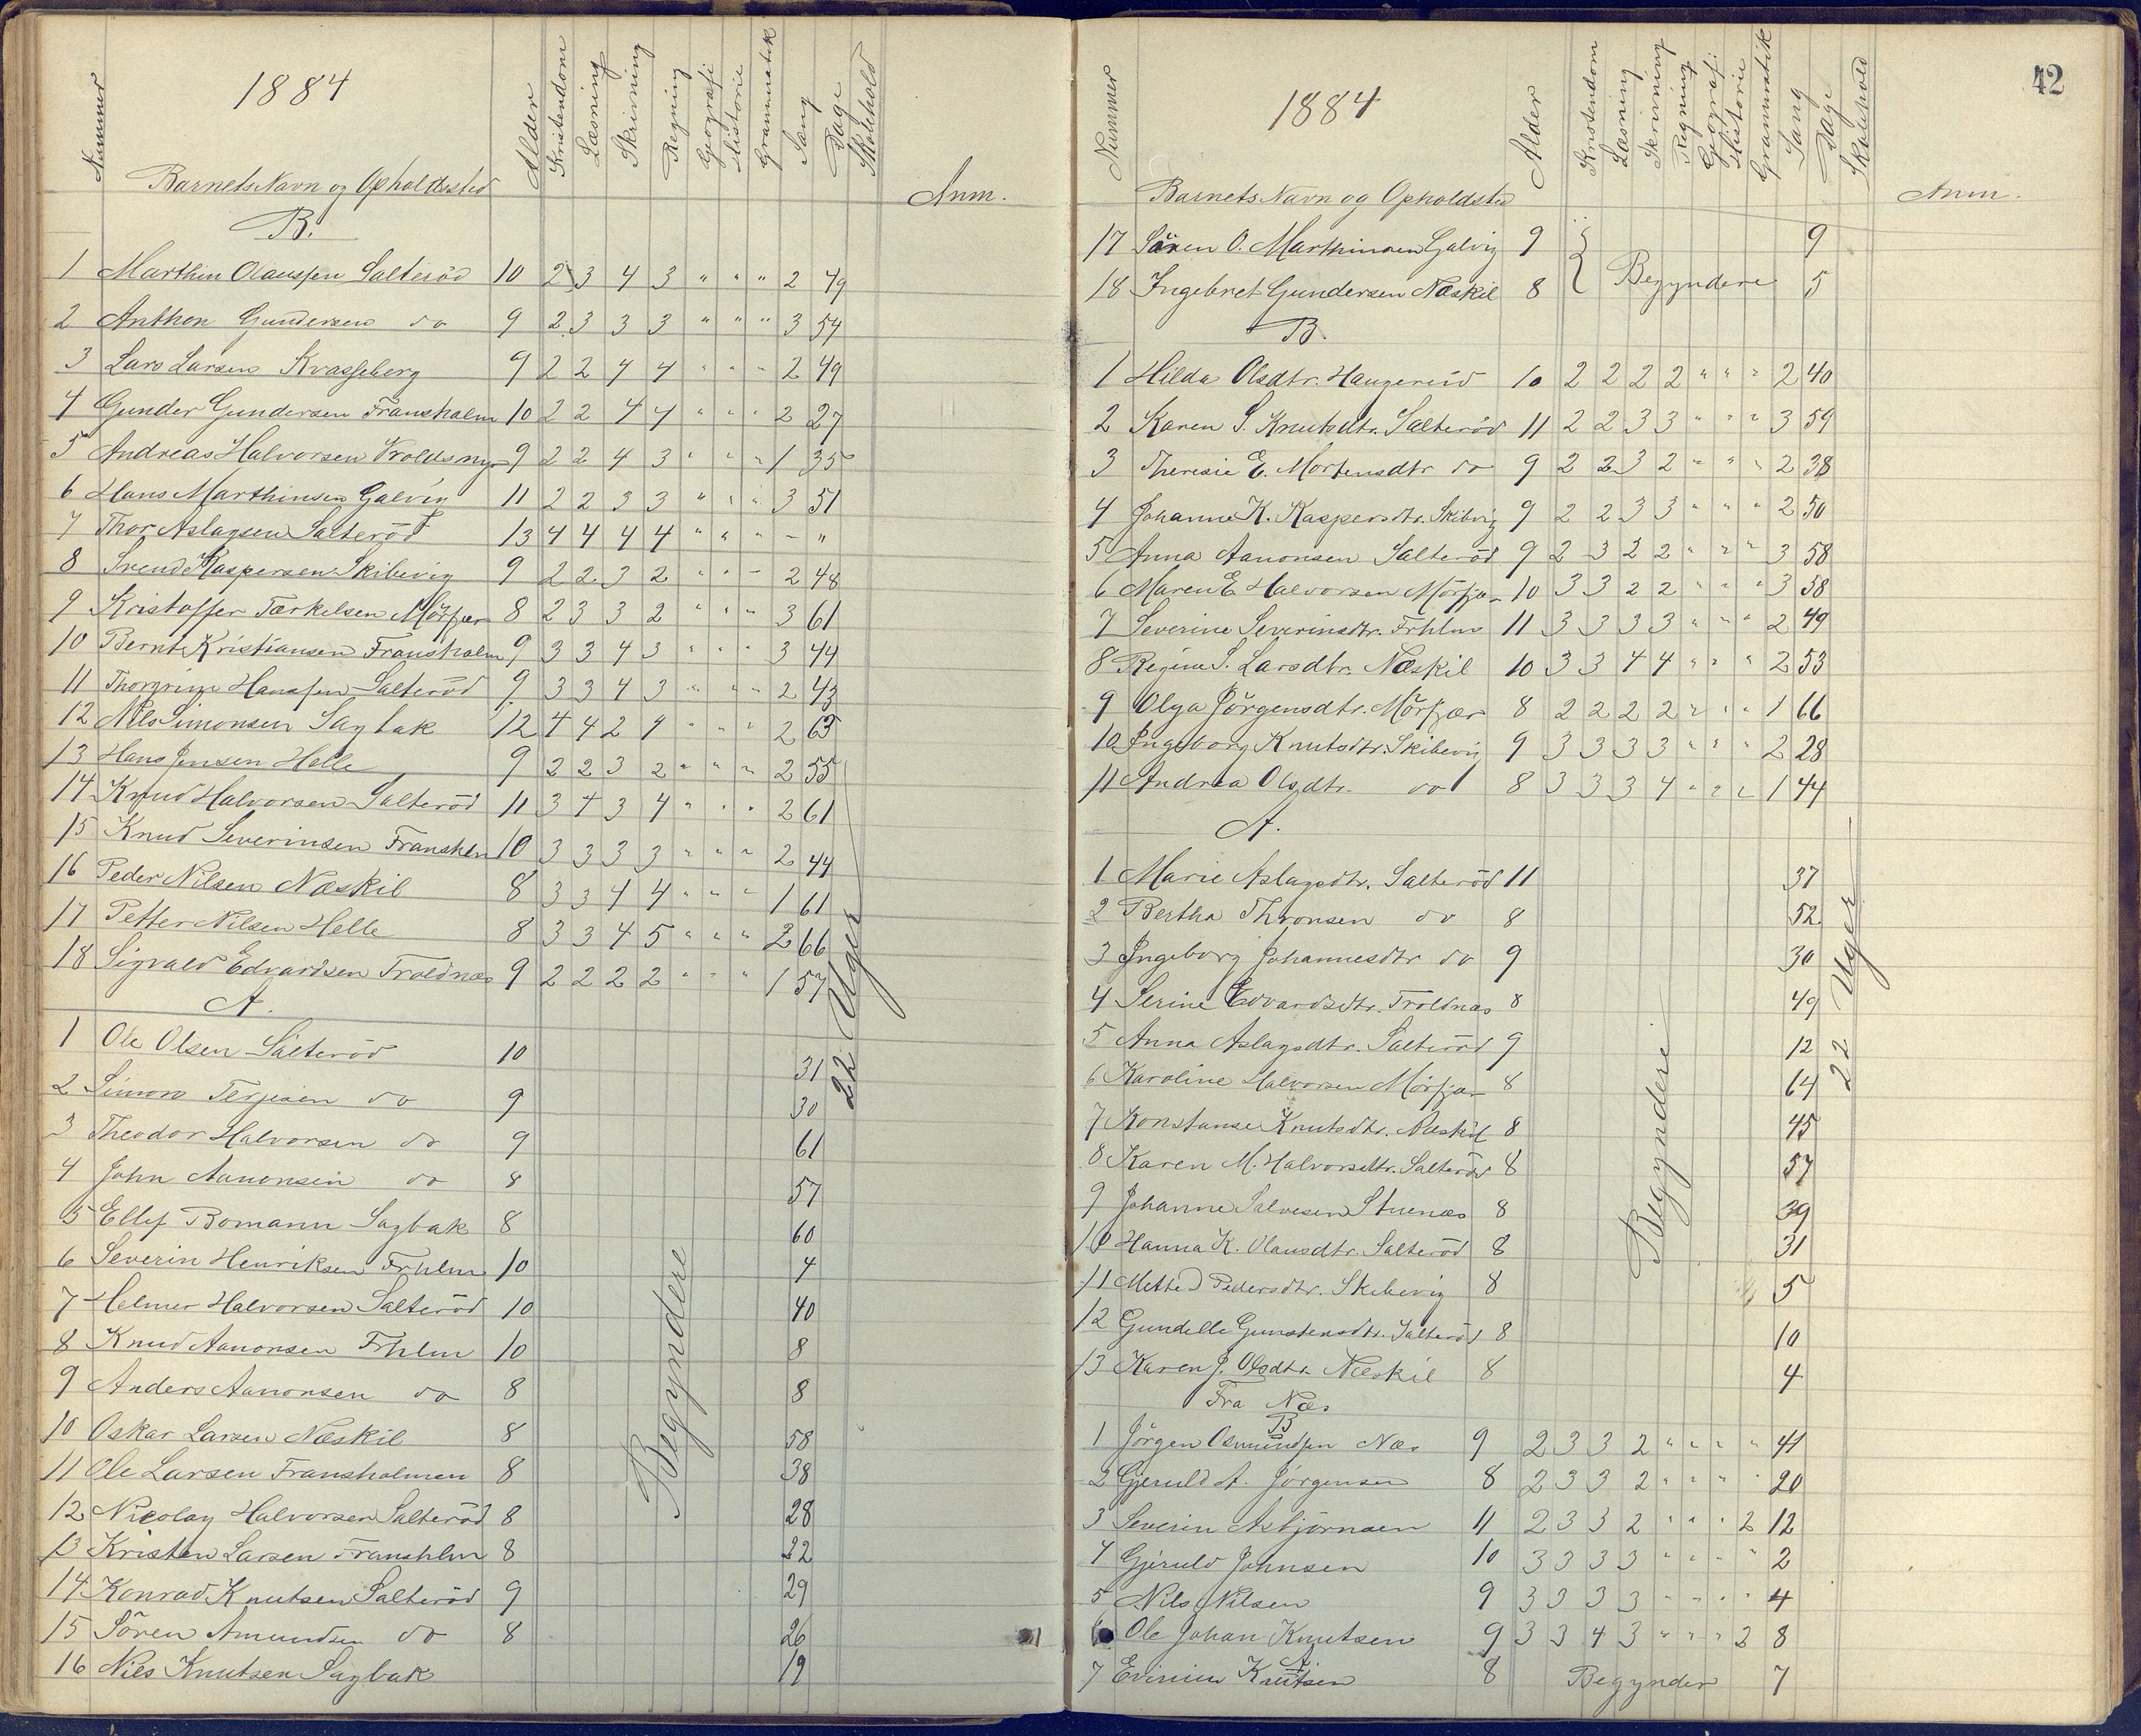 1884
Nummer
Barnets Navn og Opholdssted
Alder
Kristendom
Læsning
Skrivning
Regning
Geografi
Historie
Grammatik
Sang
Dage
Skolehold
Anm.
B.
1 Marthin Olaussen Salteröd 10 2 3 4 3 " " " 2 49
2 Anthon Gundersen do 9 2 3 3 3 " " " 3 54
3 Lars Larsen Kvasseberg 9 2 2 4 4 " " " 2 49
4 Gunder Gundersen Fransholm 10 2 2 4 4 " " " 2 27
5 Andreas Halvorsen 9 2 2 4 3 " " " 1 35
6 Hans Marthinsen Galvig 11 2 2 3 3 " " " 3 51
7 Thor Aslagsen Salteröd 13 4 4 4 4 " " " - "
8 Svend Kaspersen Skibevig 9 2 2 3 2 " " " 2 48
9 Kristoffer Tærkelsen Mörfjær 8 2 3 3 2 " " " 3 61
10 Bernt Kristiansen Fransholm 9 3 3 4 3 " " " 3 44
11 Thorgrim Hanssen Salteröd 9 3 3 4 3 " " " 2 43
12 Nils Simonsen Sagbak 12 4 4 2 4 " " " 2 63
13 Hans Jensen Helle 9 2 2 3 2 " " " 2 55
14 Knud Halvorsen Salteröd 11 3 4 3 4 " " " 2 61
15 Knud Severinsen Franshlm 10 3 3 3 3 " " " 2 44
16 Peder Nilsen Næskil 8 3 3 4 4 " " " 1 61
17 Petter Nilsen Helle 8 3 3 4 5 " " " 2 66
18 Sigvald Edvardsen Troldnæs 9 2 2 2 2 " " " 1 57
A.
1 Ole Olsen Salteröd 10 31
2 Simon Terjesen do 9 30
3 Theodor Halvorsen do 9 61
4 John Aanonsen do 8 57
5 Ellef Bomann Sagbak 8 60
6 Severin Henriksen Frhlm 10 4
7 Helmer Halvorsen Salteröd 10 40
8 Knud Aanonsen Frhlm 10 8
9 Anders Aanonsen do 8 8
10 Oskar Larsen Næskil 8 58
11 Ole Larsen Fransholmen 8 38
12 Nicolay Halvorsen Salteröd 8 28
13 Kristen Larsen Franshlm 8 22
14 Konrad Knutsen Salteröd 9 29
15 Sören Amundsen do 8 26
16 Nils Knutsen Sagbak 19
Begyndere
22 Uger
42
1884
Nummer
Barnets Navn og Opholdsted
Alder
Kristendom
Læsning
Skrivning
Regning
Geografi
Historie
Grammatik
Sang
Dage
Skolehold
Anm.
17 Sören O. Marthinsen Galvig 9 9
18 Ingebret Gundersen Næskil 8 Begyndere 5
B.
1 Hilda Olsdtr. Haugereid 10 2 2 2 2 " " " 2 40
2 Karen S. Knutsdtr. Salteröd 11 2 2 3 3 " " " 3 59
3 Theresie E. Mortensdtr do 9 2 2 3 2 " " " 2 38
4 Johanne K. Kaspersdtr. Skibvig 9 2 2 3 3 " " " 2 50
5 Anna Aanonsen Salteröd 9 2 3 2 2 " " " 3 58
6 Maren E Halvorsen Mörfjær 10 3 3 2 2 " " " 3 58
7 Severine Severinsdtr. Frhlm 11 3 3 3 3 " " " 2 49
8 Regine S. Larsdtr. Næskil 10 3 3 4 4 " " " 2 53
9 Olga Jörgensdtr. Mörfjær 8 2 2 2 2 " " " 1 66
10 Ingeborg Knutsdtr. Skibevig 9 3 3 3 3 " " " 2 28
11 Andrea Olsdtr. do 8 3 3 3 4 " " " 1 44
A.
1 Marie Aslagsdtr. Salteröd 11 37
2 Bertha Thronsen do 8 52
3 Ingeborg Johannesdtr do 9 30
4 Serine Edvardsdtr. Troldnæs 8 49
5 Anna Aslagsdtr. Salteröd 9 12
6 Karoline Halvorsen Mörfjær 8 64
7 Konstanse Knutsdtr. Næskil 8 45
8 Karen M. Halvorsdtr. Salteröd 8 57
9 Johanne Salvesen Stuenæs 8 39
10 Hanna K. Olausdtr. Salteröd 8 31
11 Methe Pedersdtr. Skibevig 8 5
12 Gundelle Gunstensdtr. Salteröd 8 10
13 Karen J. Olsdtr. Næskil 8 4
Begyndere
22 Uger
Fra Næs
B
1 Jörgen Osmundsen Næs 9 2 3 3 2 " " " " 41
2 Gjeruld A. Jörgensen 8 2 3 3 2 " " " " 20
3 Severin Asbjörnsen 11 2 3 3 2 " " " 2 12
4 Gjeruld Johnsen 10 3 3 3 3 " " " " 2
5 Nils Nilsen 9 3 3 3 3 " " " " 4
6 Ole Johan Knutsen 9 3 3 4 3 " " " 3 8
A.
7 Knutsen 8 Begynder 7